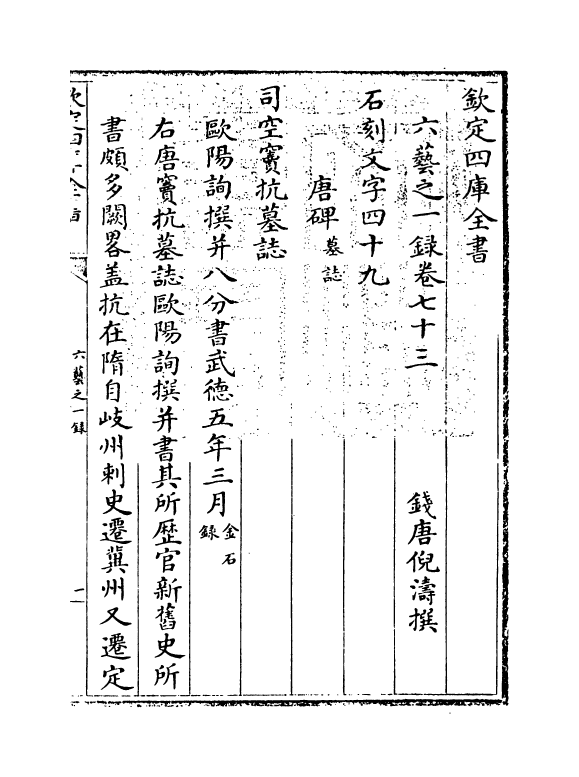 欽定四庫全書
六藝之一錄卷七十三
錢唐倪濤撰
石刻文字四十九
唐碑墓誌
司空竇抗墓誌
歐陽詢撰并八分書武德五年三月金石錄
右唐竇抗墓誌歐陽詢撰并書其所歴官新舊史所
書頗多闕畧盖抗在隋自岐州刺史遷冀州又遷定
六藝之一錄
一